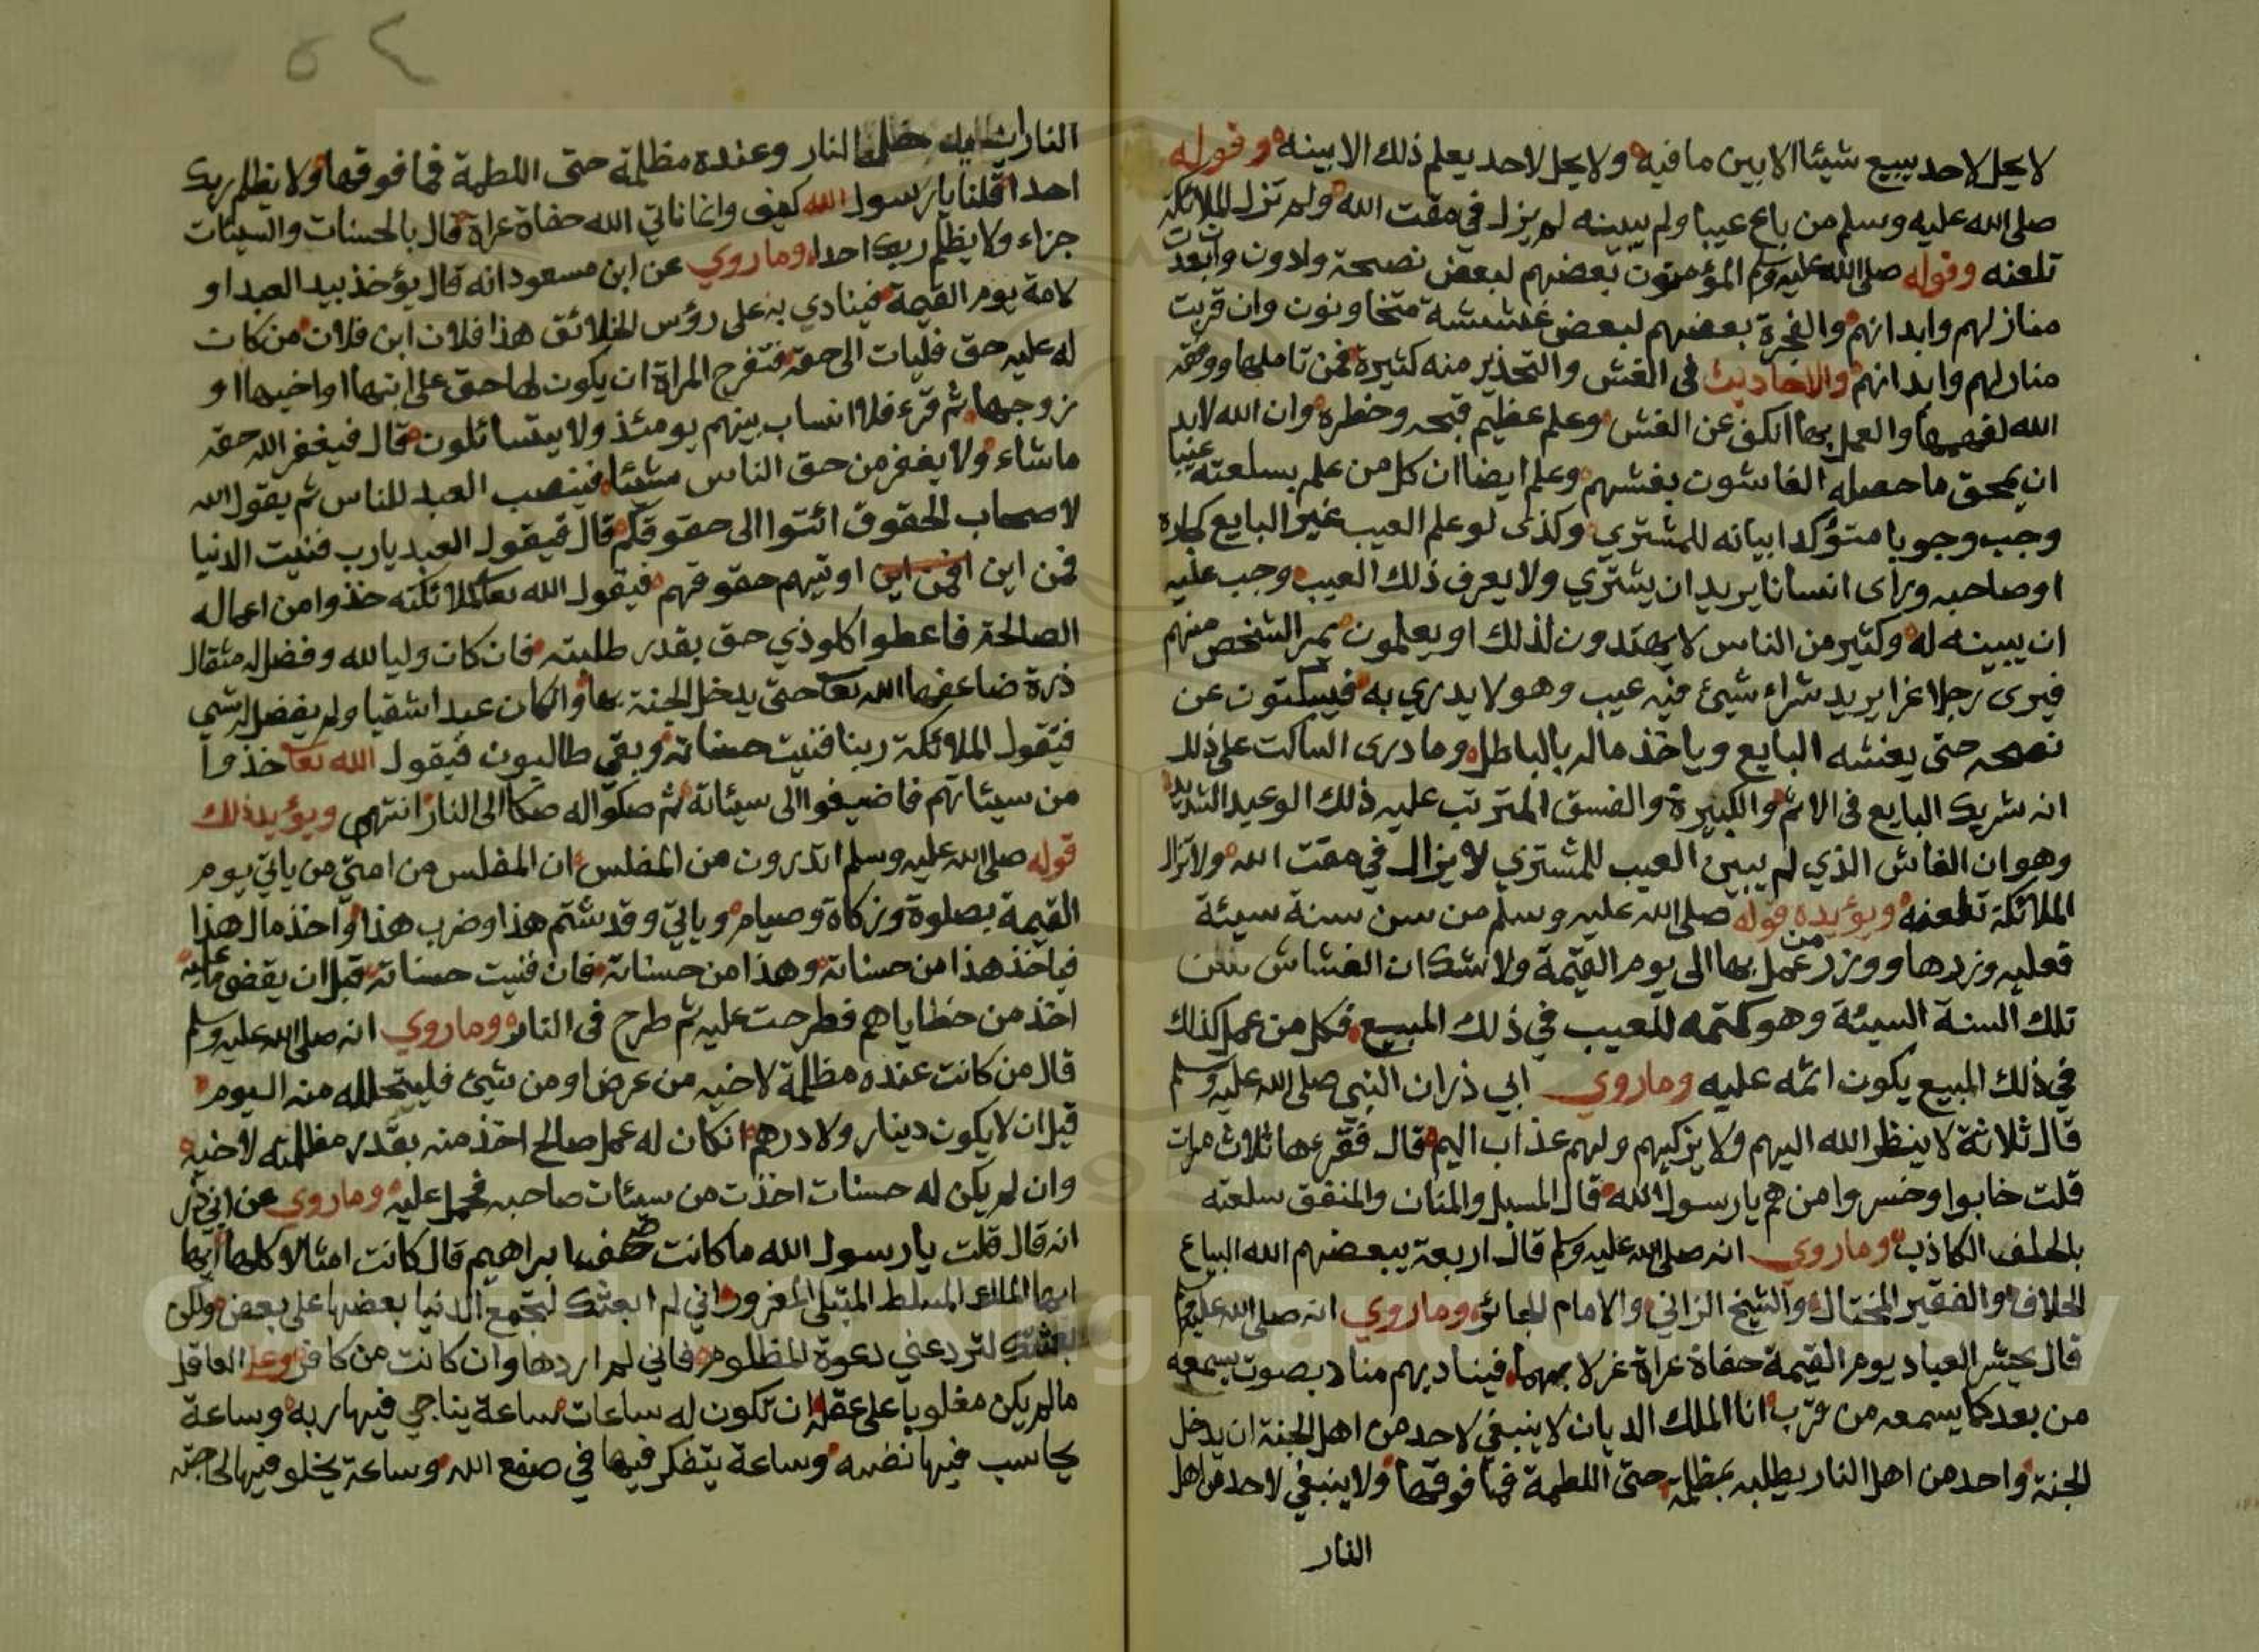 لا يحل لاحد يبيع شيئا الا بين ما فيه ولا يحل لاحد يعلم ذلك الا بينه وقوله
صلى الله عليه وسلم من باع عيبا ولم يبينه لم يزل في مقت الله ولم تزل الملائكة
تلعنه وقوله صلى الله عليه وسلم المؤمنون بعضهم لبعض نصحة وادون وان بعدت
منازلهم وابدانهم والفجرة بعضهم لبعض غششة متخاونون وان قربت
منازلهم وابدانهم والاحاديث في الغش والتحذير منه كثيرة فمن تاملها ووفقه
الله لفهمها والعمل بها انكف عن الغش وعلم عظيم قبحه وخطره وان الله لابد
ان يمحق ما حصله الغاشون بغشهم وعلم ايضا ان كل من علم بسلعته عيبا
وجب وجوبا متؤكدا بيانه للمشتري وكذى لو علم العيب غير البايع كجاره
او صاحبه وراى انسانا يريد ان يشتري ولا يعرف ذلك العيب وجب عليه
ان يبينه له وكثير من الناس لا يهتدون لذلك او يعلمون يمر الشخص منهم
فيرى رجلا غرا يريد شراء شيئ فيه عيب وهو لا يدري به فيسكتون عن
نصحه حتى يغشه البايع وياخذ ماله بالباطل وما درى الساكت على ذلك
انه شريك البايع في الاثم والكبيرة والفسق المترتب عليه ذلك الوعيد الشديد
وهو ان الغاش الذي لم يبين العيب للمشتري لا يزال في مقت الله ولا تزال
الملائكة تلعنه ويؤيده قوله صلى الله عليه وسلم من سن سنة سيئة
فعليه وزرها ووزر من عمل بها الى يوم القيمة ولا شك ان الغشاش سن
تلك السنة السيئة وهو كتمه للعيب في ذلك المبيع فكل من عمل كذلك
في ذلك المبيع يكون اثمه عليه وما روي ابي ذر ان النبي صلى الله عليه وسلم
قال ثلاثة لا ينظر الله اليهم ولا يزكيهم ولهم عذاب اليم قال فقرءها ثلاث مرات
قلت خابوا وخسروا من هم يا رسول الله قال المسبل والمنان والمنفق سلعته
بالحلف الكاذب وما روي انه صلى الله عليه وسلم قال اربعة يبعضهم الله البياع
الحلاف والفقير المختال والشيخ الزاني والامام الجائر وما روي انه صلى الله عليه وسلم
قال يحشر العباد يوم القيمة حفاة عراة غرلا بهما فيناديهم مناد بصوت يسمعه
من بعد كما يسمعه من قرب انا الملك الديان لا ينبغي لاحد من اهل الجنة ان يدخل
الجنة واحد من اهل النار يطلبه بمظلمة حتى اللطمة فما فوقها ولا ينبغي لاحد من اهل
النار
٥٢
النار ان النار وعنده مظلمة حتى اللطمة فما فوقها ولا يظلم ربك
احدا قلنا يا رسول الله كيف وانما ناتي الله حفاة عراة قال بالحسنات والسيئات
جزاء ولا يظلم ربك احدا وما روي عن ابن مسعود انه قال يؤخذ بيد العبد او
لامة يوم القيمة فينادي به على رؤس الخلائق هذا فلان ابن فلان من كان
له عليه حق فليات الى حقه فتفرح المراة ان يكون لها حق على ابنها او اخيها او
زوجها ثم قرء فلا انساب بينهم يومئذ ولا يتسائلون قال فيغفر الله حقه
ماشاء ولا يغفر من حق الناس شيئا فينصب العبد للناس ثم يقول الله
لاصحاب الحقوق ائتوا الى حقوقكم قال فيقول العبد يارب فنيت الدنيا
فمن اين افمن اين اوتيهم حقوقهم فيقول الله تعا لملائكته خذوا من اعماله
الصالحة فاعطوا كلو ذي حق بقدر طلبته فان كان وليا لله وفضل له مثقال
ذرة ضاعفها الله تعا حتى يدخل الجنة بها وان كان عبدا شقيا ولم يفضل له شي
فيقول الملائكة ربنا فنيت حسناته وبقي طالبون فيقول الله تعا خذوا
من سيئاتهم فاضيفوا الى سيئاته ثم صكوا له صكا الى النار انتهى ويؤيد ذلك
قوله صلى الله عليه وسلم اتدرون من المفلس ان المفلس من امتي من ياتي يوم
القيمة بصلوة وزكاة وصيام وياتي وقد شتم هذا وضرب هذا واخذ مال هذا
فياخذ هذا من حسناته وهذا من حسناته فان فنيت حسناته قبل ان يقضى ما عليه
اخذ من خطاياهم فطرحت عليه ثم طرح في النار وما روي انه صلى الله عليه وسلم
قال من كانت عنده مظلمة لاخيه من عرض او من شيئ فليتحلله منه اليوم
قبل ان لا يكون دينار ولا درهم ان كان له عمل صالح اخذ منه بقدر مظلمته لاخيه
وان لم يكن له حسنات اخذت من سيئات صاحبه فحمل عليه وما روي عن ابي ذر
انه قال قلت يا رسول الله ما كانت صحف ابراهيم قال كانت امثالا كلها ايها
ايها الملك المسلط المبتلى المغرور اني لم ابعثك لتجمع الدنيا بعضها على بعض ولكن
بعثتك لترد عني دعوة المظلوم فاني لم اردها وان كانت من كافر وعلى العاقل
مالم يكن مغلوبا على عقله ان تكون له ساعات ساعة يناجي فيها ربه وساعة
يحاسب فيها نفسه وساعة يتفكر فيها في صنع الله وساعة يخلو فيها لحاجته